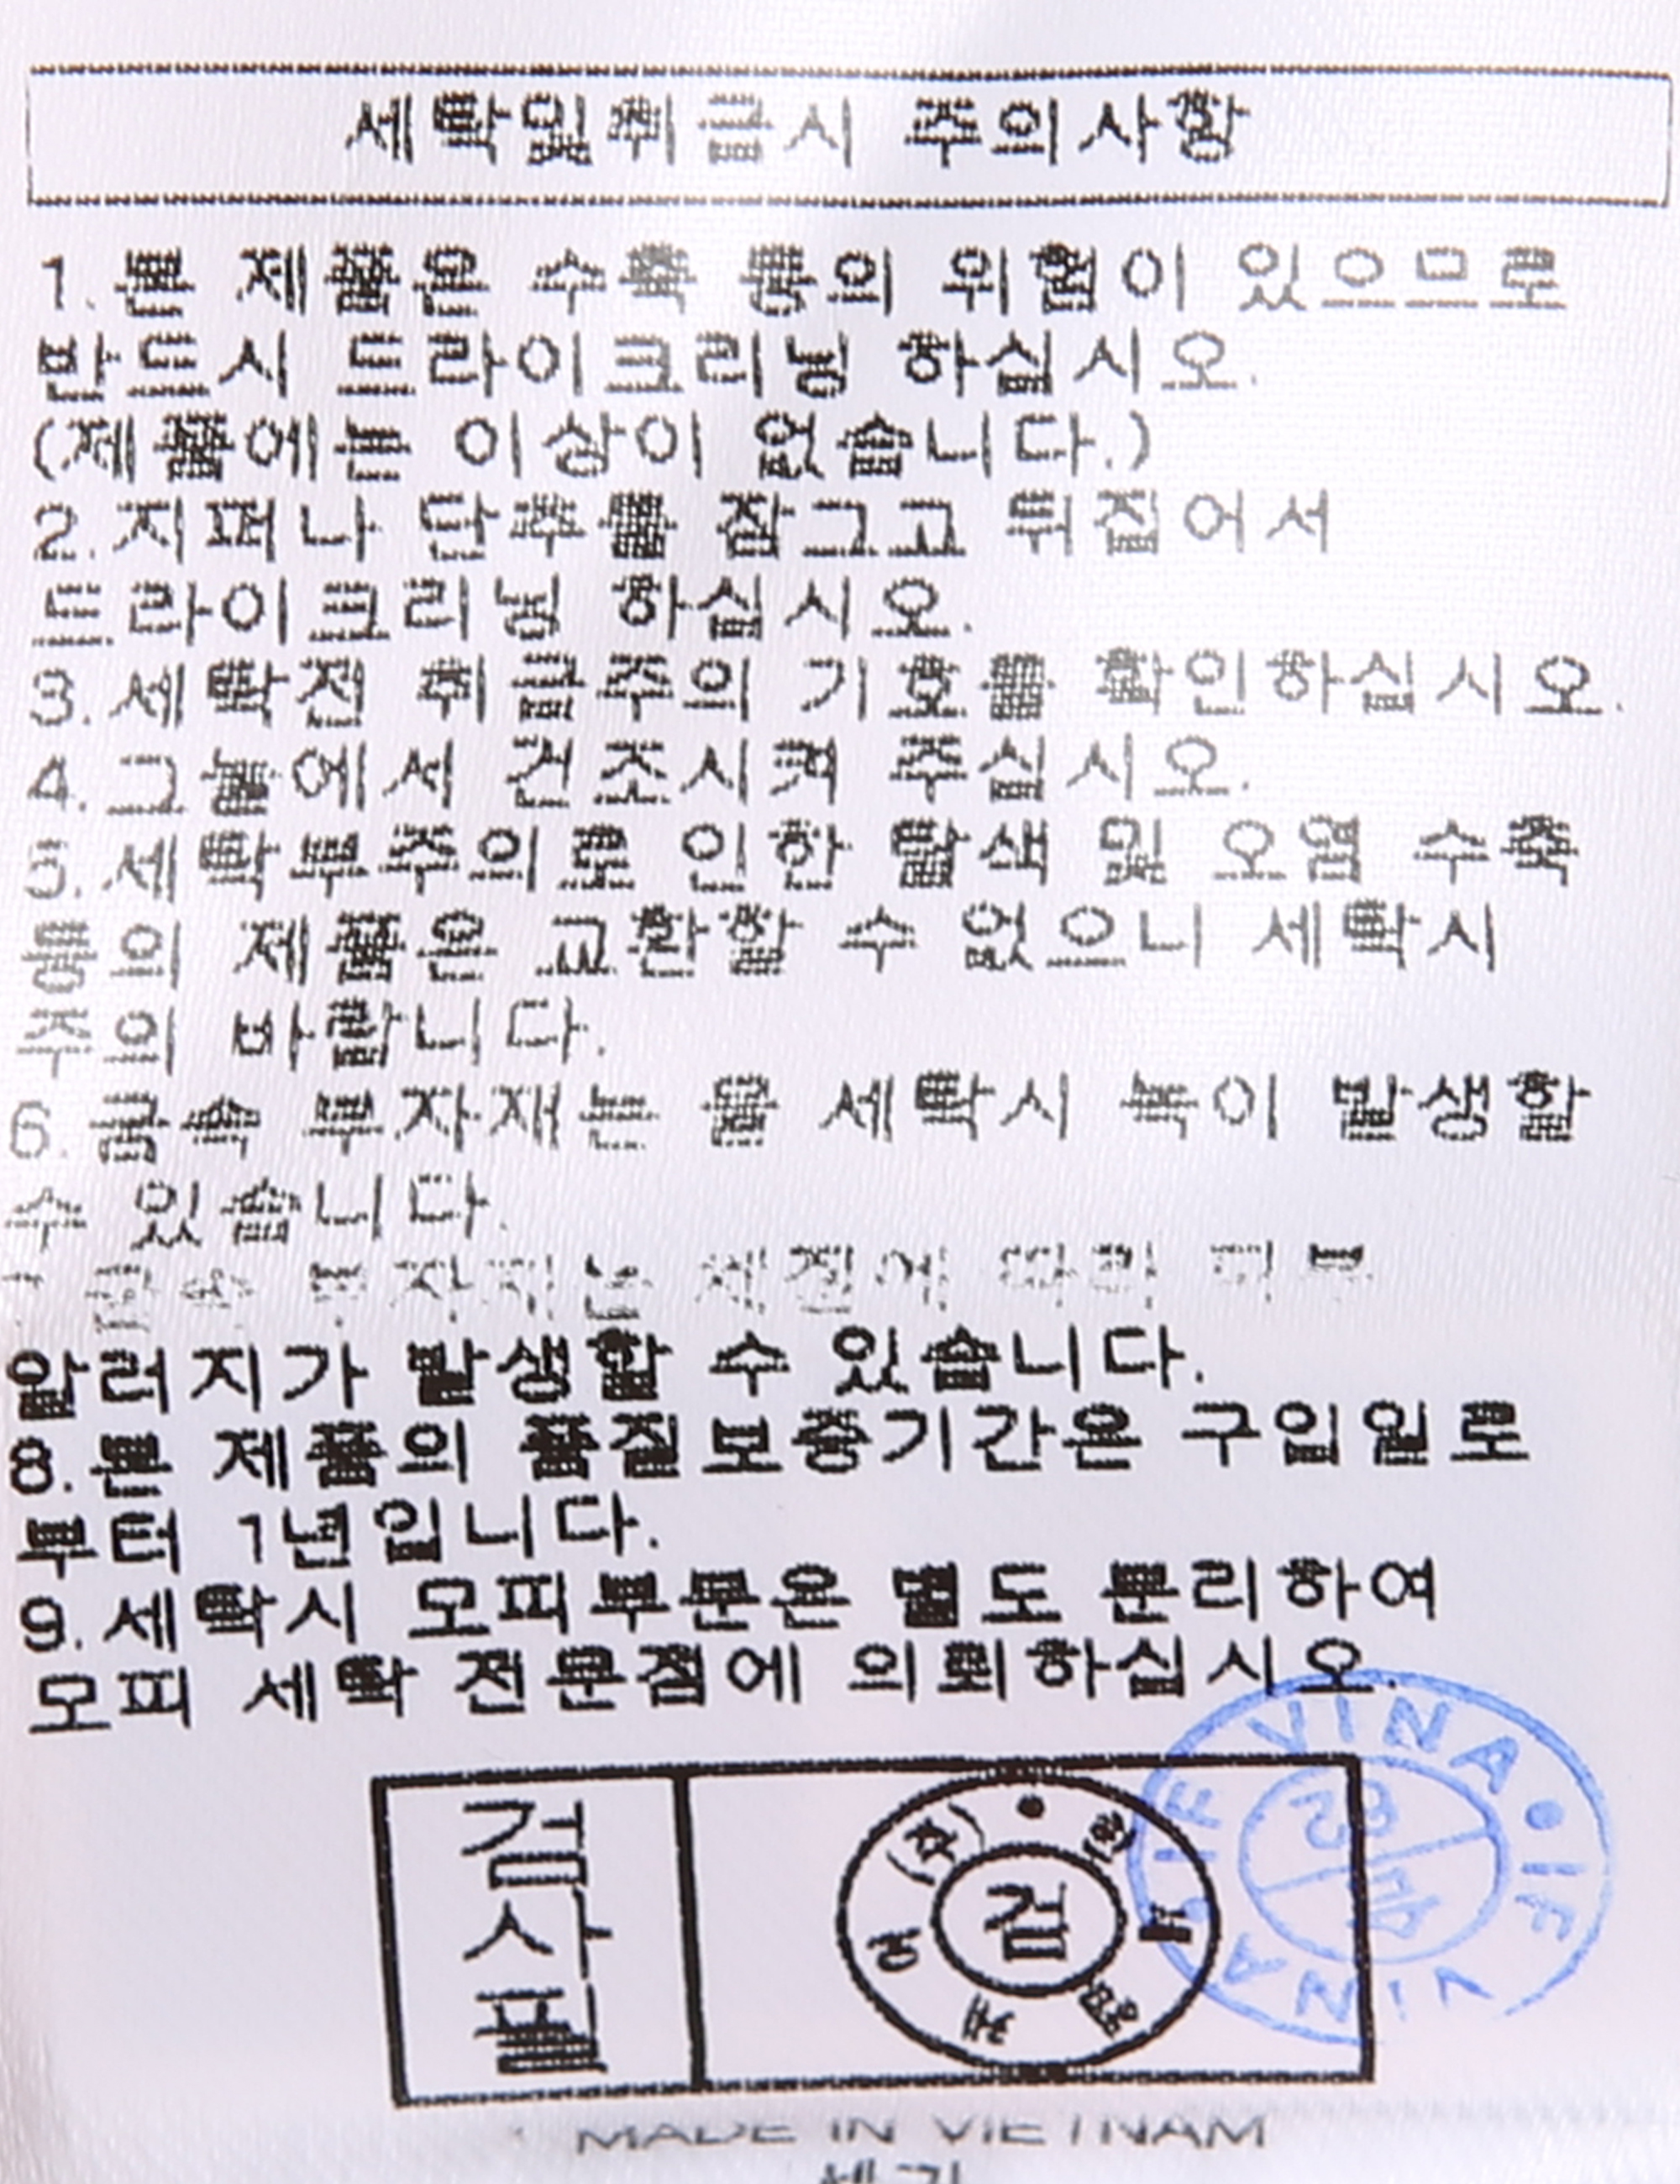 세탁및취급시 주의사항
1. 본 제품은 수축 등의 위험이 있으므로
반드시 드라이크리닝 하십시오.
(제품에는 이상이 없습니다.)
2. 지퍼나 단추를 잠그고 뒤집어서
드라이크리닝 하십시오.
3. 세탁전 취급주의 기호를 확인하십시오.
4. 그늘에서 건조시켜 주십시오.
5. 세탁부주의로 인한 탈색 및 오염 수축
등의 제품은 교환할 수 없으니 세탁시
주의 바랍니다.
6. 금속 부자재는 물 세탁시 녹이 발생할
수 있습니다.
금속 부자재는
알러지가 발생할 수 있습니다.
8. 본 제품의 품질보증기간은 구입일로
부터 1년입니다.
9. 세탁시 모피부분은 별도 분리하여
모피 세탁 전문점에 의뢰하십시오.
검사필
검
(주)
IF VINA • IF VINA •
23
MADE IN VIETNAM